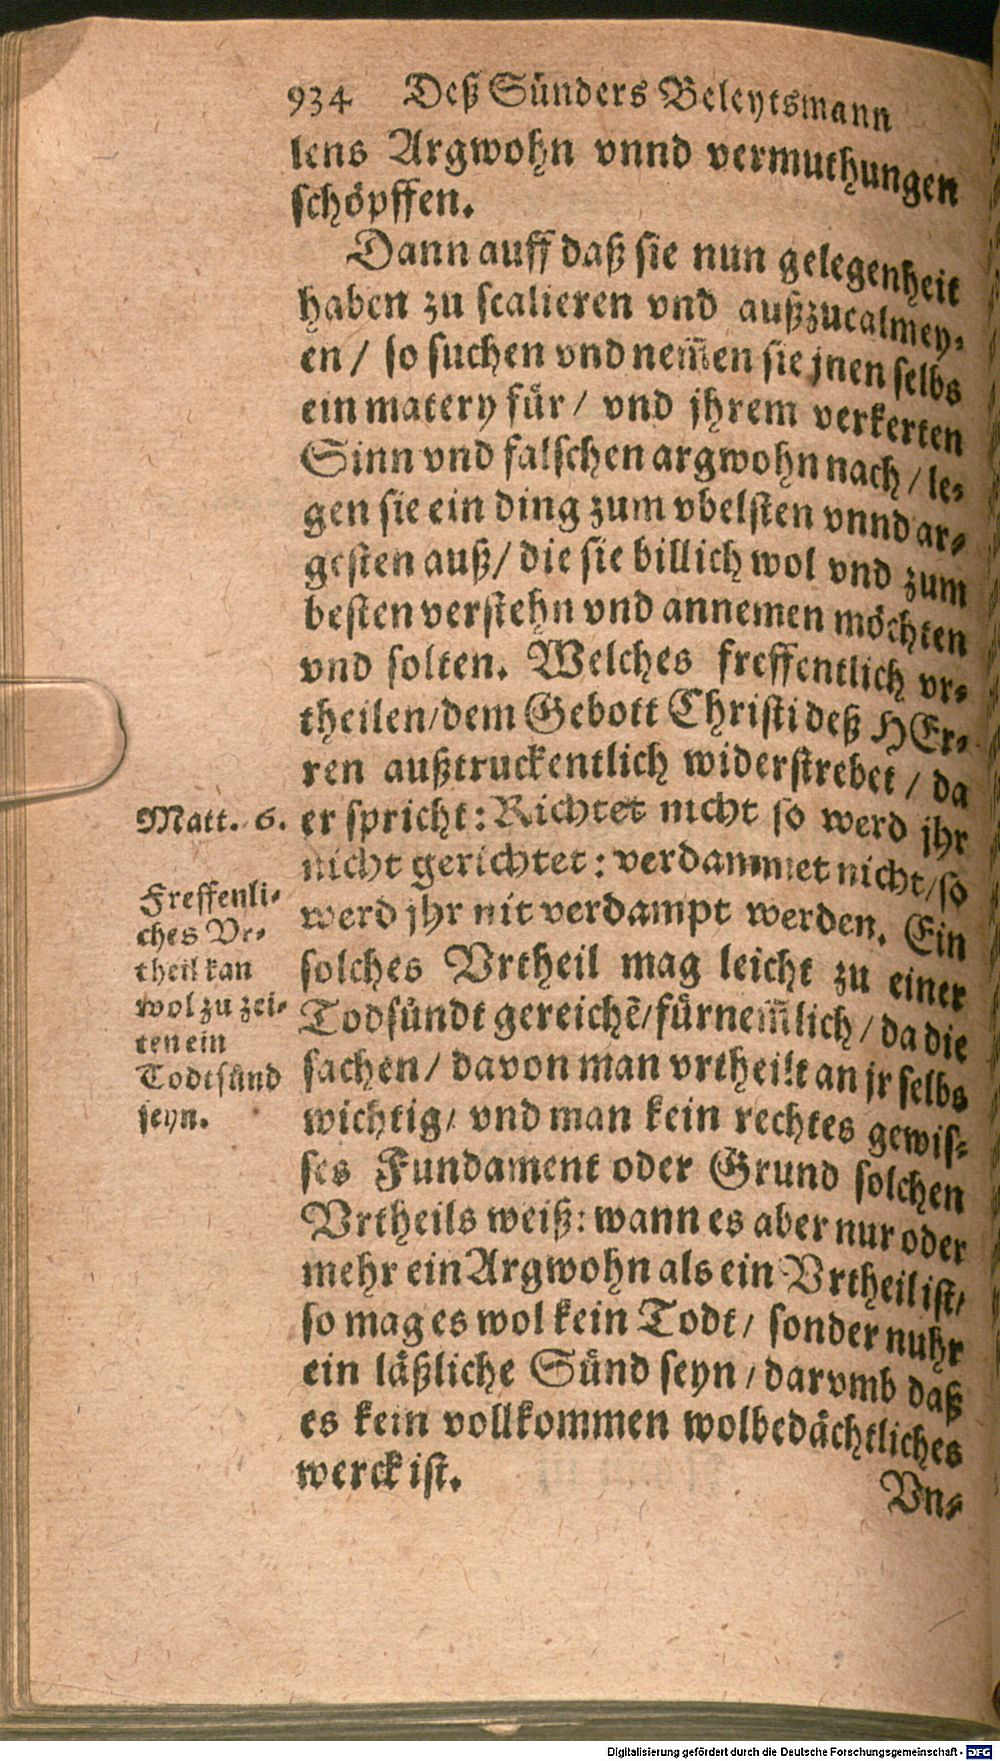 934 Deß Sünders Beleytsmann
lens Argwohn vnnd vermuthungen
schöpffen.
Dann auff daß sie nun gelegenheit
haben zu scalieren vnd außzucalmey-
en / so suchen vnd nem̃en sie jnen selbs
ein matery für / vnd jhrem verkerten
Sinn vnd falschen argwohn nach / le-
gen sie ein ding zum vbelsten vnnd ar-
gesten auß / die sie billich wol vnd zum
besten verstehn vnd annemen möchten
vnd solten. Welches freffentlich vr-
theilen / dem Gebott Christi deß HEr-
ren außtruckentlich widerstrebet / da
Matt. 6.
er spricht: Richtet nicht so werd jhr
nicht gerichtet: verdammet nicht / so
werd jhr nit verdampt werden. Ein
Freffenli-
ches Vr-
theil kan
wol zu zei-
ten ein
Todtsünd
seyn.
solches Vrtheil mag leicht zu einer
Todsündt gereichẽ / fürnem̃lich / da die
sachen / davon man vrtheilt an jr selbs
wichtig / vnd man kein rechtes gewis-
ses Fundament oder Grund solchen
Vrtheils weiß: wann es aber nur oder
mehr ein Argwohn als ein Vrtheil ist /
so mag es wol kein Todt / sonder nuhr
ein läßliche Sünd seyn / darvmb daß
es kein vollkommen wolbedächtliches
werck ist.
Vn-
Digitalisierung gefördert durch die Deutsche Forschungsgemeinschaft - DFG